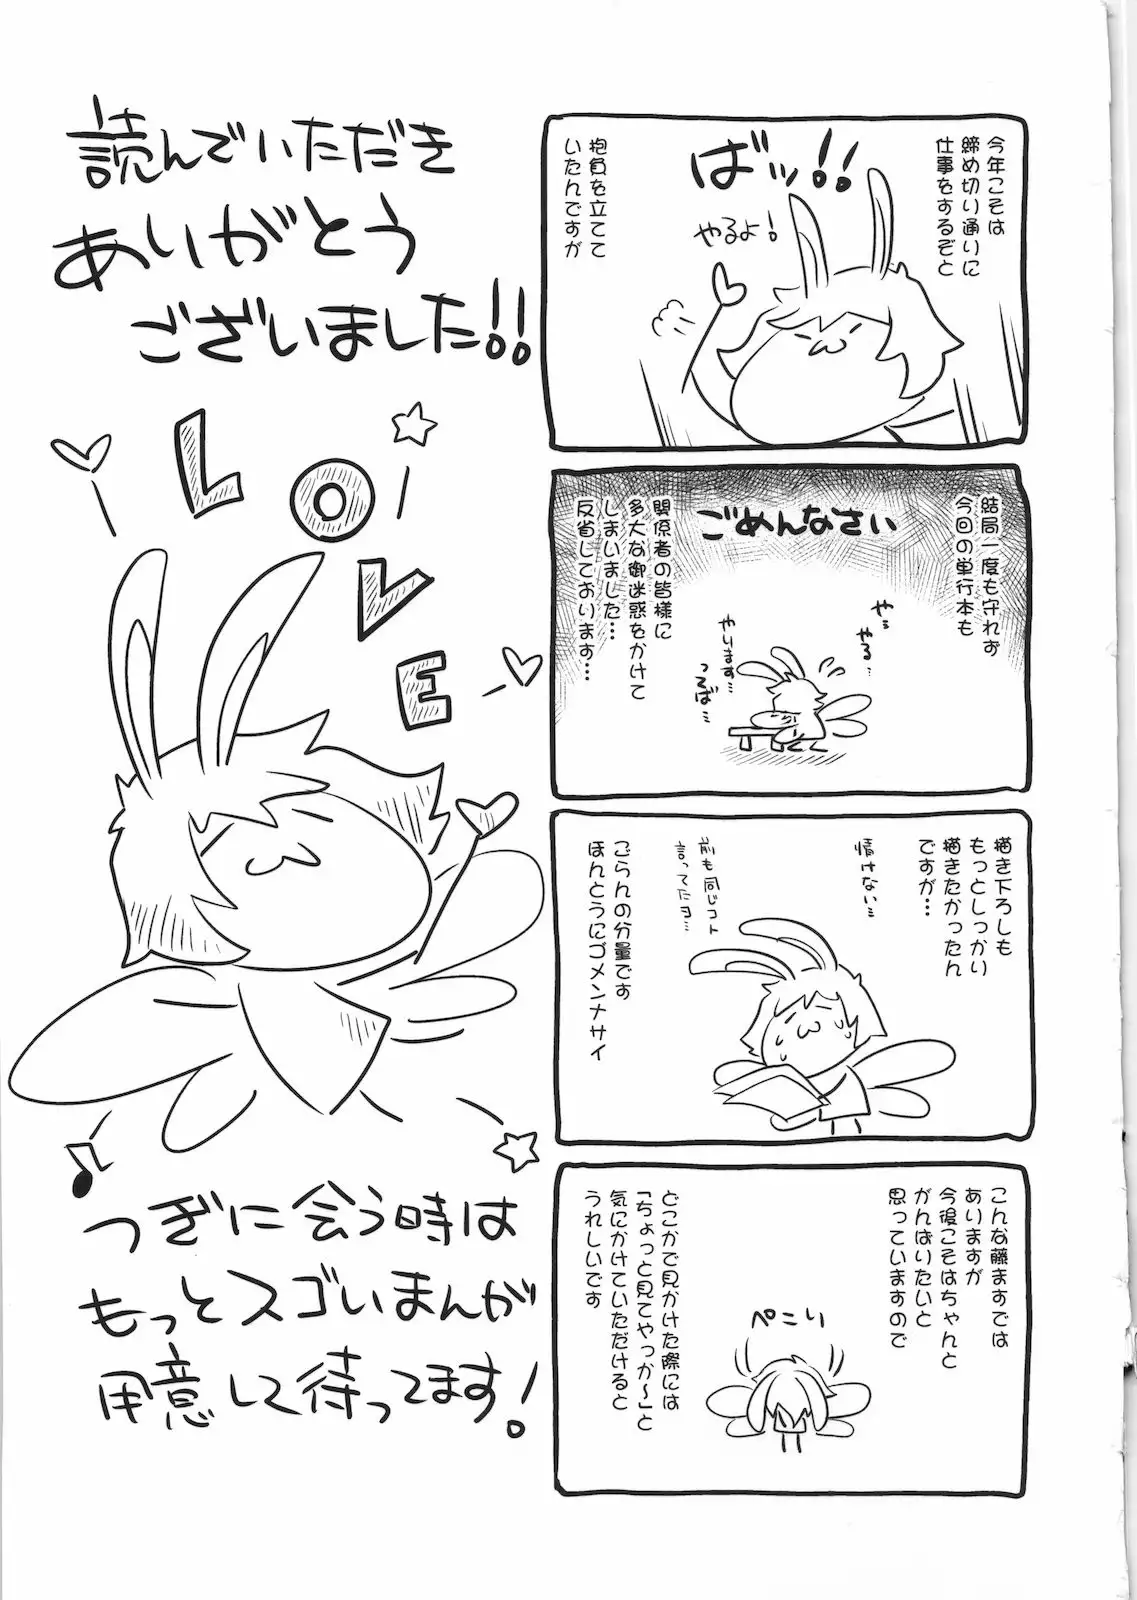 今年こそは
締め切り通りに
仕事をするぞと
ばッ!!
やるよ!
抱負を立てて
いたんですが
結局一度も守れず
今回の単行本も
ごめんなさい
関係者の皆様に
多大な御迷惑をかけて
しまいました…
反省しております…
や…
やる…
やります…
つるば…
描き下ろしも
もっとしっかり
描きたかったん
ですが…
情けない…
前も同じコト
言ってたヨ…
ごらんの分量です
ほんとうにゴメンナサイ
こんな藤ますでは
ありますが
今後こそはちゃんと
がんばりたいと
思っていますので
ぺこり
どこかで見かけた際には
「ちょっと見てやっか〜」と
気にかけていただけると
うれしいです
読んでいただき
ありがとう
ございました!!
LOVE
つぎに会う時は
もっとスゴいまんが
用意して待ってます!